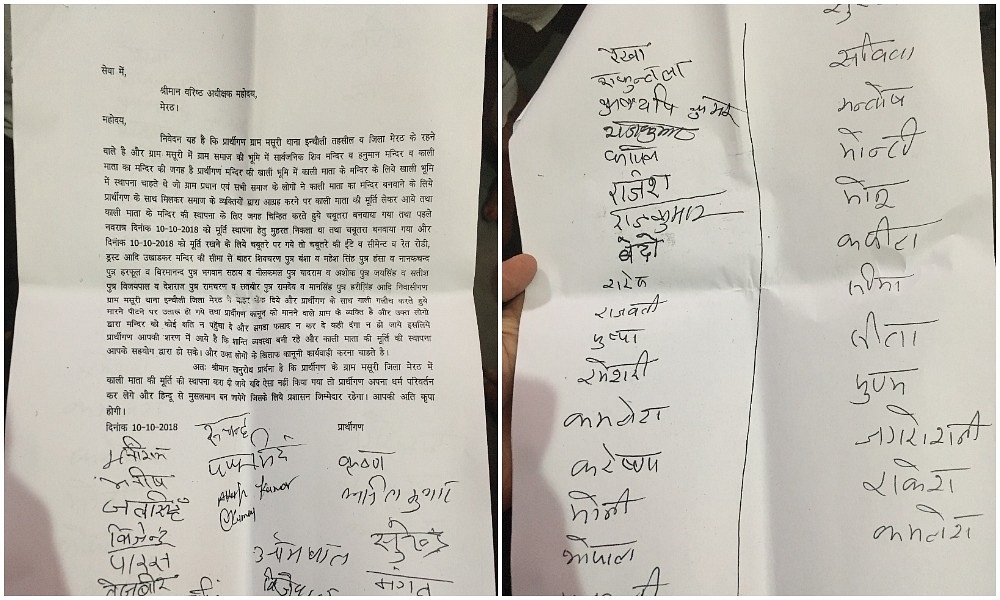 सेवा में,
श्रीमान वरिष्ठ अधीक्षक महोदय,
मेरठ।
महोदय,
निवेदन यह है कि प्रार्थीगण ग्राम मसूरी थाना इन्चौली तहसील व जिला मेरठ के रहने
वाले है और ग्राम मसूरी में ग्राम समाज की भूमि में सार्वजनिक शिव मन्दिर व हनुमान मन्दिर व काली
माता का मन्दिर की जगह है प्रार्थीगण मन्दिर की खाली भूमि में काली माता के मन्दिर के लिये खाली भूमि
में स्थापना चाहते थे जो ग्राम प्रधान एवं सभी समाज के लोगों ने काली माता का मन्दिर बनवाने के लिये
प्रार्थीगण के साथ मिलकर समाज के व्यक्तियों द्वारा आग्रह करने पर काली माता की मूर्ति लेकर आये तथा
काली माता के मन्दिर की स्थापना के लिए जगह चिन्हित करते हुये चबूतरा बनवाया गया तथा पहले
नवरात्र दिनांक 10-10-2018 को मूर्ति स्थापना हेतु मुहरत निकला था तथा चबूतरा बनवाया गया और
दिनांक 10-10-2018 को मूर्ति रखने के लिये चबूतरे पर गये तो चबूतरे की ईंटे व सीमेन्ट व रेत रोडी,
ड्रस्ट आदि उखाडकर मन्दिर की सीमा से बाहर शिवचरण पुत्र बंशा व महेश सिंह पुत्र हंसा व नानकचन्द
पुत्र हरफूल व बिरमानन्द पुत्र भगवान सहाय व नीलकमल पुत्र यादराम व अशोक पुत्र जयसिंह व सतीश
पुत्र विजयपाल व देशराज पुत्र रामचरण व सतबीर पुत्र रामदेव व मानसिंह पुत्र हरीसिंह आदि निवासीगण
ग्राम मसूरी थाना इन्चौली जिला मेरठ ने बाहर फेंक दिये और प्रार्थीगण के साथ गाली गलौच करते हुये
मारने पीटने पर उतारू हो गये तथा प्रार्थीगण कानून को मानने वाले ग्राम के व्यक्ति है और उक्त लोगो
द्वारा मन्दिर को कोई क्षति न पहुँचा दे और झगडा फसाद न कर दे कही दंगा न हो जाये इसलिये
प्रार्थीगण आपकी शरण में आये है कि शान्ति व्यवस्था बनी रहे और काली माता की मूर्ति की स्थापना
आपके सहयोग द्वारा हो सके। और उक्त लोगो के खिलाफ कानूनी कार्यवाही करना चाहते है।
अतः श्रीमान अनुरोध प्रार्थना है कि प्रार्थीगण के ग्राम मसूरी जिला मेरठ में
काली माता की मूर्ति की स्थापना करा दी जाये यदि ऐसा नही किया गया तो प्रार्थीगण अपना धर्म परिवर्तन
कर लेगे और हिन्दू से मुसलमान बन जायेगे जिसके लिये प्रशासन जिम्मेदार रहेगा। आपकी अति कृपा
होगी।
दिनांक 10-10-2018 प्रार्थीगण
कृष्ण
जतसिंह
Kumar
बिजेन्द्र
पारस
ओमपाल
तेजबीर
मंगत
रेखा
शकुन्तला
राजकुमार
राजेश
राजकुमार
राजवती
पुष्पा
रमेशरी
मोनी
सविता
मन्तोष
मोन्टी
मोनू
कविता
सीमा
गीता
पुनम
जगरोशनी
राकेश
कमलेश